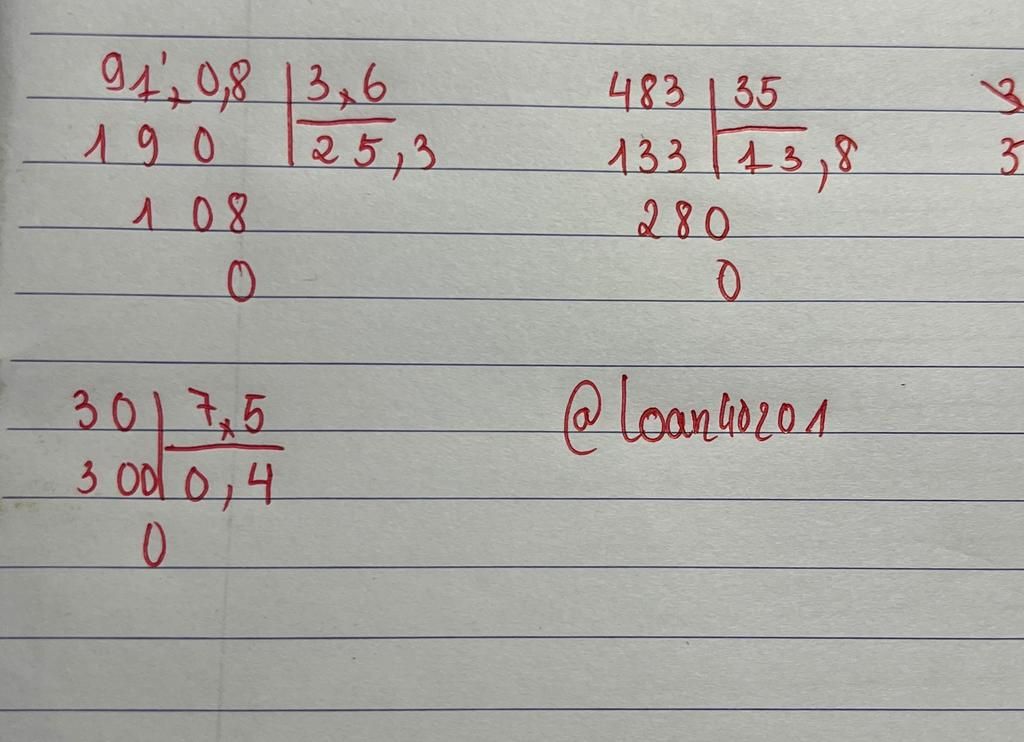 91,0,8 | 3,6
190 | 25,3
108
0
483 | 35
133 | 13,8
280
0
3
5
30 | 7,5
300 | 0,4
0
@loan40201